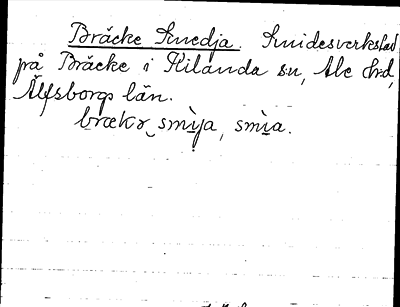 Bräcke Smedja. Smidesverkstad
på Bräcke i Kilanda sn, Ale hd,
Älfsborgs län.
brækə smìja, smìa.